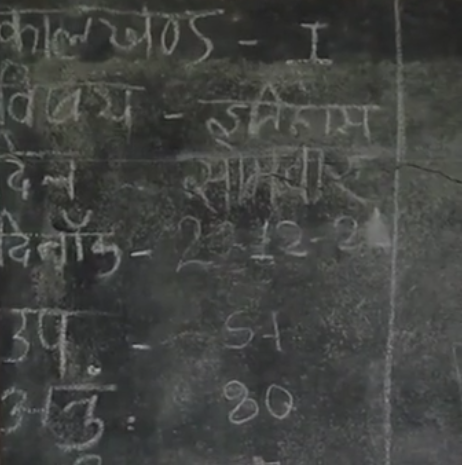 कालखण्ड - I
विषय - इतिहास
दिन - सोमवार
दिनाँक -
उप. - 51
अनु. 80